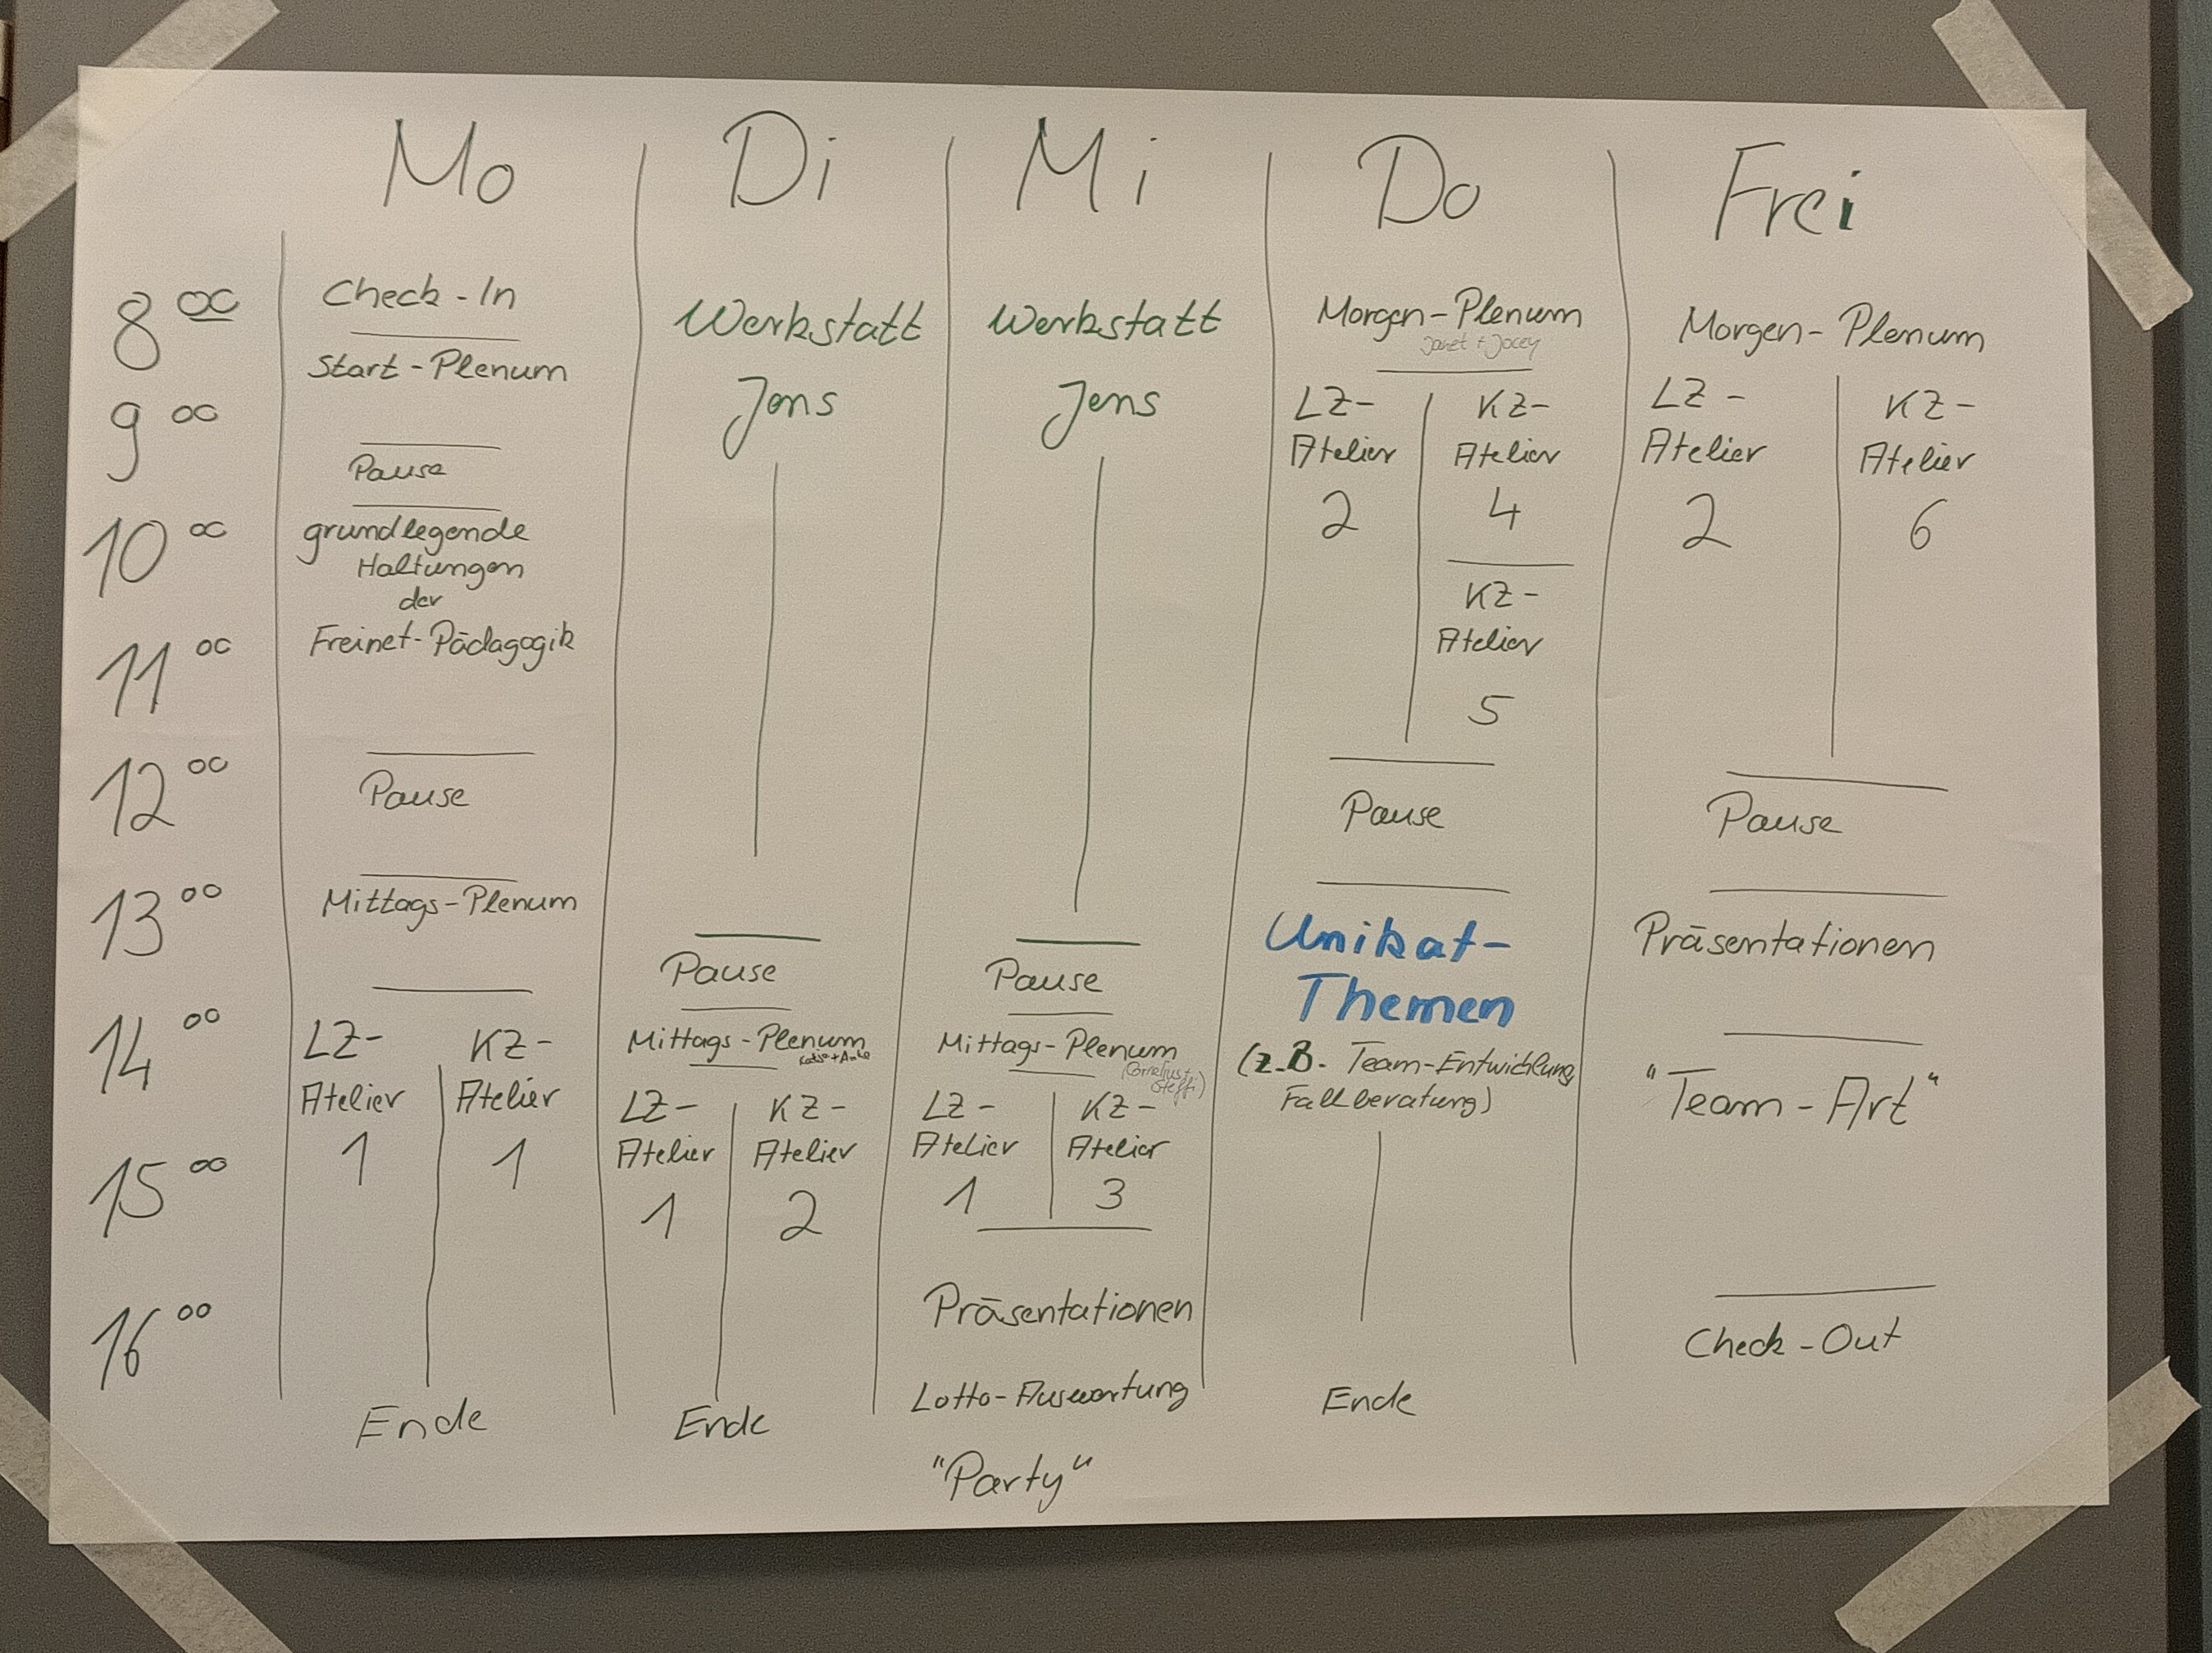 Mo
Di
Mi
Do
Frei
8 00
9 00
10 00
11 00
12 00
13 00
14 00
15 00
16 00
Check-In
Start-Plenum
Pause
grundlegende
Haltungen
der
Freinet-Pädagogik
Pause
Mittags-Plenum
LZ-
Atelier
1
KZ-
Atelier
1
Ende
Werkstatt
Jens
Pause
Mittags-Plenum
LZ-
Atelier
1
KZ-
Atelier
2
Ende
Werkstatt
Jens
Pause
Mittags-Plenum
(Cornelius+
Steffi)
LZ-
Atelier
1
KZ-
Atelier
3
Präsentationen
Lotto-Auswertung
"Party"
Morgen-Plenum
Janet + Jocey
LZ-
Atelier
2
KZ-
Atelier
4
KZ-
Atelier
5
Pause
Unikat-
Themen
(z.B. Team-Entwicklung,
Fallberatung)
Ende
Morgen-Plenum
LZ-
Atelier
2
KZ-
Atelier
6
Pause
Präsentationen
"Team-Art"
Check-Out